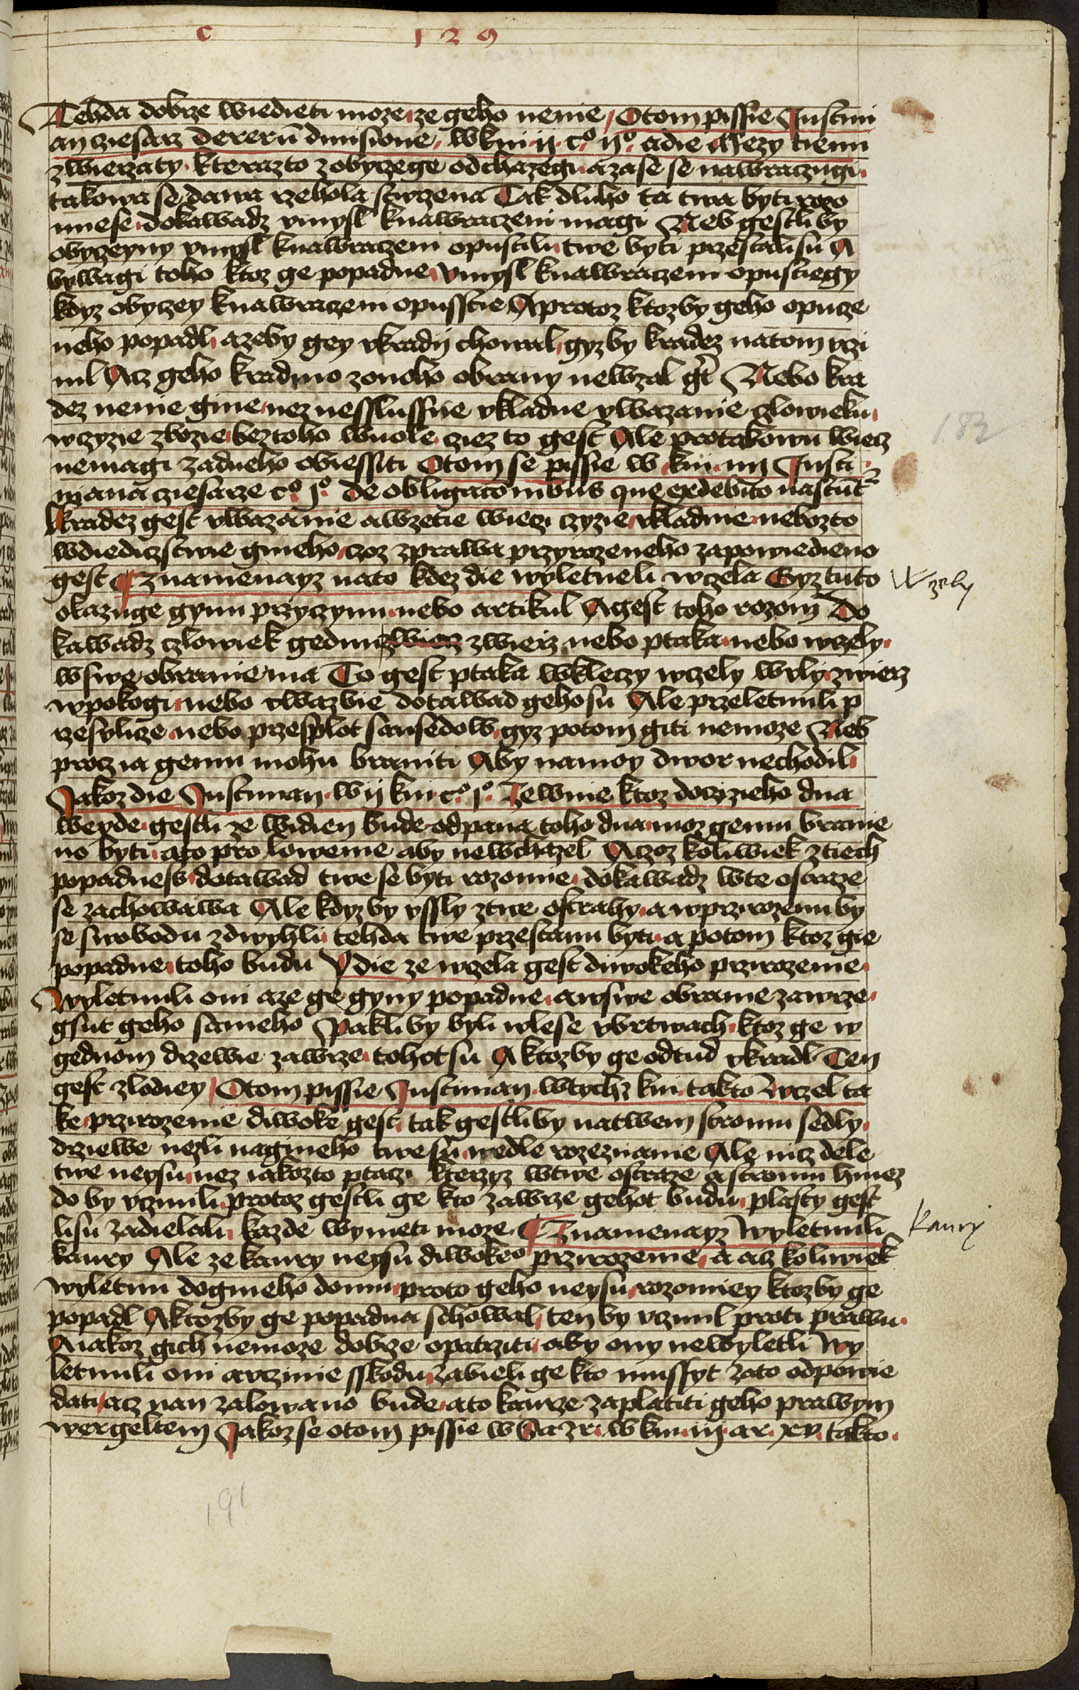 c 129
Tehda dobrze wiedieti moze ze geho nenie / Otom pissie Justini
an cziesarz dererū diuisione / wkni ii c° ii° adie Mezy tiemi
zwierzaty kterazto zobyczege odchazegi azase se nawraczugi
takowa se dawa rzehola stwrzena Tak dluho ta twa byti rozo
miese dokawadz vmysl knawraczeni magi Neb gestli by
obyczeyny vmysl knawraczeni opustili twe byti przestali sū A
bywagi toho ktoz ge popadne vmysl knawraczeni opustiegy
kdyz obyczey knawraczeni opusstie Aprotoz ktozby geho opuze
neho popadl azeby gey vkradij chowal gyz by kradez natom vczi
nil Acz geho kradmo zonoho obrany newzal Nebo kra
dez nenie gine nez nesslussne vkladne vlwazanie czlowieku
wczyzie zbozie beztoho wuole ciez to gest Ale protakowu wiecz
nemagi zadneho obiessiti Otom se pissie w kni iiii Justi
niana ciesarze c° i° de obligacionibus que exdelicto nascūt
kradez gest vlwazanie awzetie wieczi czyzie vkladnie nebozto
wdiedicztwie gineho czoz zprawa przyrozeneho zapowiedieno
gest Znamenayz nato kdez die wyletneli wczela Gyz tuto
okazuge gynu przyczynu nebo artikul Agest toho rozom Do
kawadz czlowiek gednu zwierz nebo ptaka nebo wczely
wswe obranie ma To gest ptaka wkleczy wczely wvly zwierz
wpokogi nebo vwazbie dotawad gehosu Ale przeletnuli p
rzesylicze nebo przesplot sausedow gyz potom giti nemoze Neb
procz ia gemu mohu braniti Aby namoy dwor nechodil
Jakoz die Justinian wii kni c° i° Zewnie ktoz doczizieho dna
weyde gestli ze widien bude odpana toho dna moz gemu branie
no byti ato pro lowenie aby newchazel Aczoz koliwiek ztiech
popadness dotawad twe se byti rozomie dokawadz wte ostraze
se zachowawa Ale kdyz by vssly ztwe ostrahy awprzirozenu by
se swobodu zdwyhli tehda twe przestanu byti a potom ktoz gie
popadne toho budu Vdie ze wczela gest diwokeho przirozenie
Wyletnuli oni aze ge gyny popadne awswe obranie zawrze
gsut geho sameho Pakli by byli wlese vbrtwach ktoz ge w
gednom drzewie zawrze tohot su A ktozby ge odtud vkradl Ten
gest zlodiey / Otom pissie Justinian wtychz kni takto wczel ta
ke przirozenie diwoke gest tak gestli by natwem stromu sedly
drziewe nezli nagineho twe sū wedle rozeznanie Ale nicz dele
twe neysu nez iakozto ptaczi kterzyz wtwe ostraze astromu hniez
do by vczinili protoz gestli ge kto zawrze gehot budu plasty gest
lisu zadielali kazde wymieti moze Znamenayz wyletnuli
kaury Ale ze kaury neysu diwokeo przirozenie a acz koliwiek
wyletnu dogineho domu proto geho neysu rozomiey ktozby ge
popadl Aktozby ge popadna schowal ten by vczinil proti prawu
Aiakoz gich nemoze dobrze opatrziti aby ony newyletli Wy
letnuli oni avczinie sskodu zabieli ge kto mussyt zato odpowie
dati acz nan zalowano bude ato kaurze zaplatiti geho prawym
wergeltem Jakoz se otom pissie w Sazr w kni iii ar xv takto
Wzely
Kaury
183
191